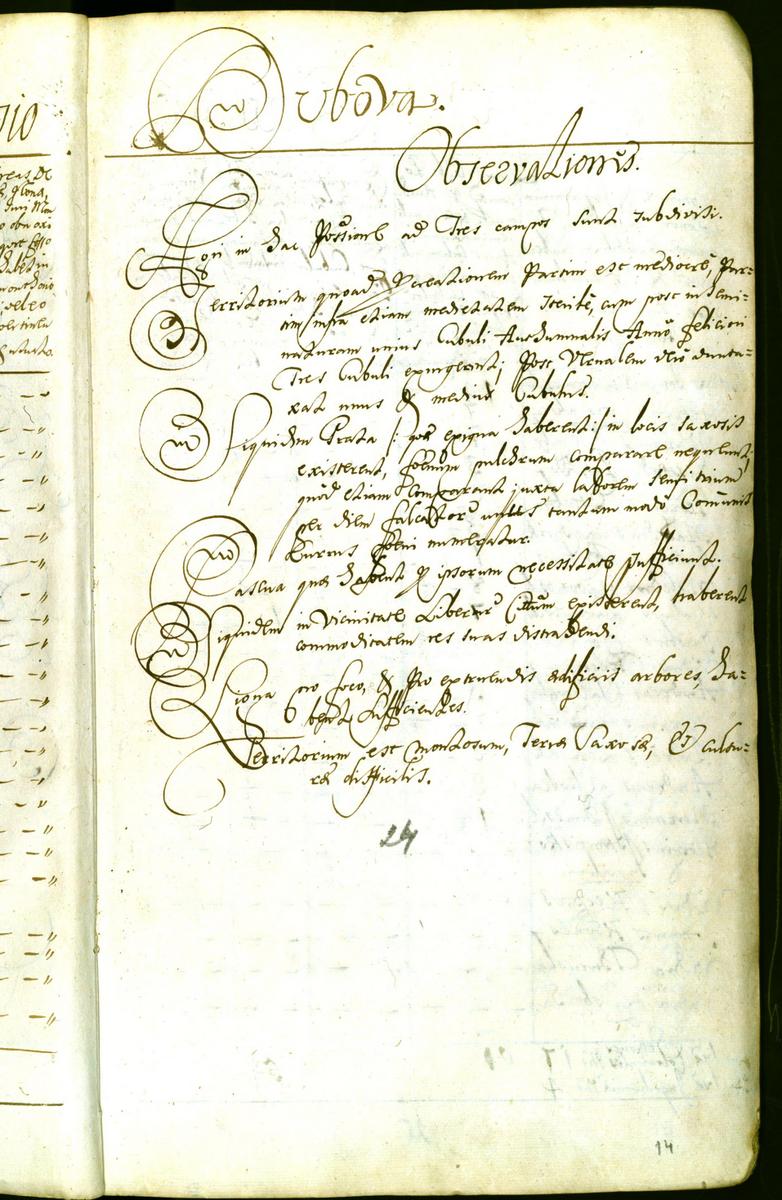 Dubova.
Observationes.
Agri in hac Possione ad Tres campos sunt subdivisi.
2do Territorium quoad Procreationem Partim est mediocre, Par=
tim infra etiam medietatem sterile, cum post in semi=
naturam unius Cubuli Autumnalis Anno feliciori
Tres Cubuli exurgerent; Post Vernalem vero dunta=
xat unus & medius Cubulus.
3tio Siquidem Prata /: quae exigua haberent :/ in locis saxosis
existerent, foenum pulchrum comparare nequirent;
quod etiam comparant juxta laborem
per diem falcator tantum modo Communis
Currus foeni numeratur.
4to Pascua quae habent pro ipsorum necessitate sufficiunt.
5to Siquidem in Vicinitate Liberar Cittum existerent, haberent
commoditatem res suas distrahendi.
6 Ligna pro foco, & Pro extruendis aedificiis arbores, ha=
bent sufficientes.
7 Territorium est montosum, Terra Saxosa, & cultu=
rae difficilis.
24
14